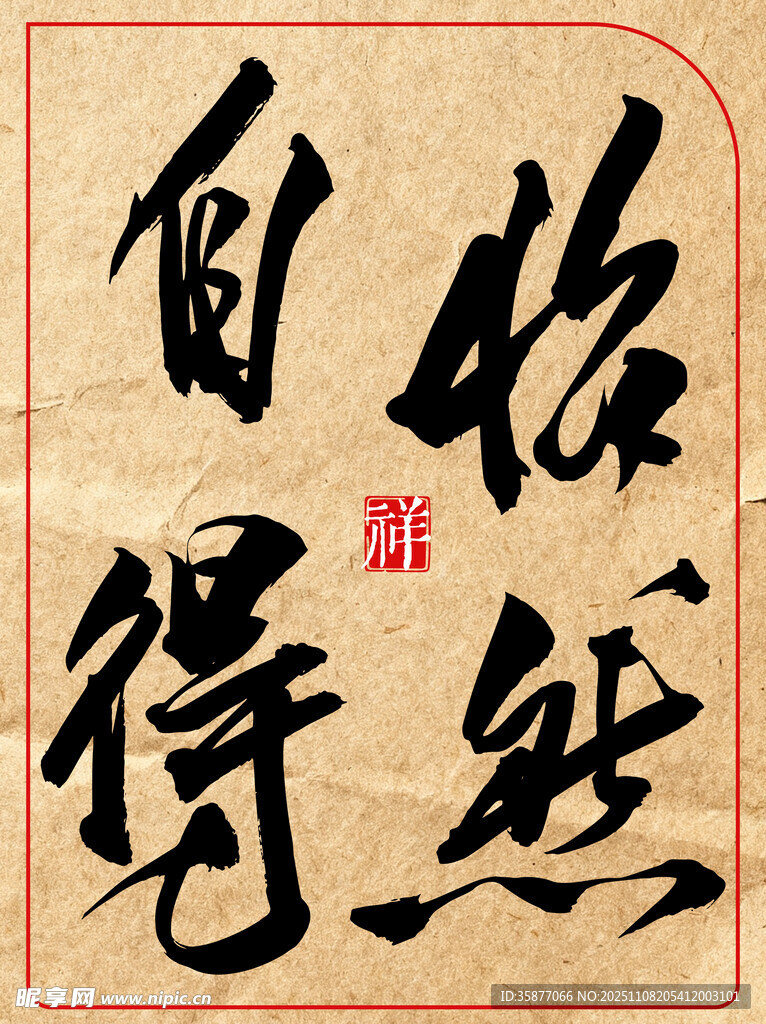 怡然
自得
祥
昵享网 www.nipic.cn
ID:35877066 NO:20251108205412003101